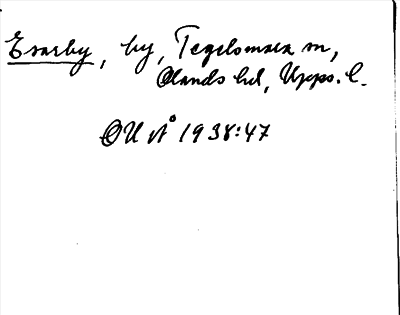 Evarby, by, Tegelsmora sn,
Olands hd, Upps. l.
OUÅ 1938:47